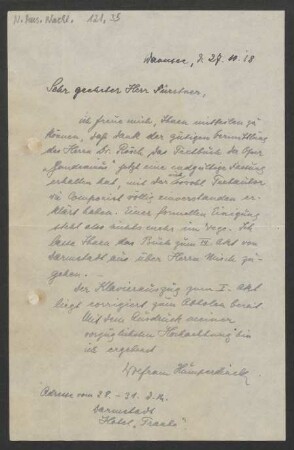 N. Mus. Nachl. 121, 33
d. 27.10.18
Sehr geehrter Herr Fürstner,
ich freue mich, Ihnen mitteilen zu
können, daß dank der gütigen Vermittlung
des Herrn Dr. Rösch das Textbuch der Oper
jetzt eine endgültige Fassung
erhalten hat, mit der sich sowohl Textautor
wie Componist völlig einverstanden er-
klärt haben. Einer formellen Einigung
steht also nichts mehr im Wege. Ich
lasse Ihnen das Buch zum II. Akt von
Darmstadt aus über Herrn Rösch zu-
gehen.
Der Klavierauszug zum I. Akt
liegt corrigiert zum Abholen bereit.
Mit dem Ausdruck meiner
vorzüglichsten Hochachtung bin
ich ergebenst
Wolfram Humperdinck
Adresse vom 28. - 31. d. M.
Darmstadt
Hotel „Traube“